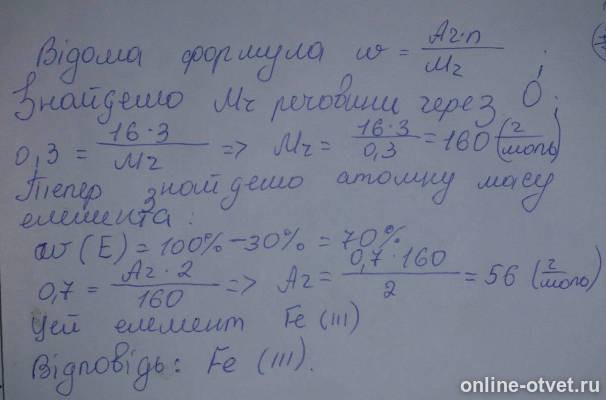 Відома формула w = Ar·n / Mr ;
Знайдемо Mr речовини через O;
0,3 = 16·3 / Mr => Mr = 16·3 / 0,3 = 160 (г/моль)
Тепер знайдемо атомну масу
елемента:
w (E) = 100% - 30% = 70%
0,7 = Ar·2 / 160 => Ar = 0,7·160 / 2 = 56 (г/моль)
Цей елемент Fe (III)
Відповідь: Fe (III).
online-otvet.ru